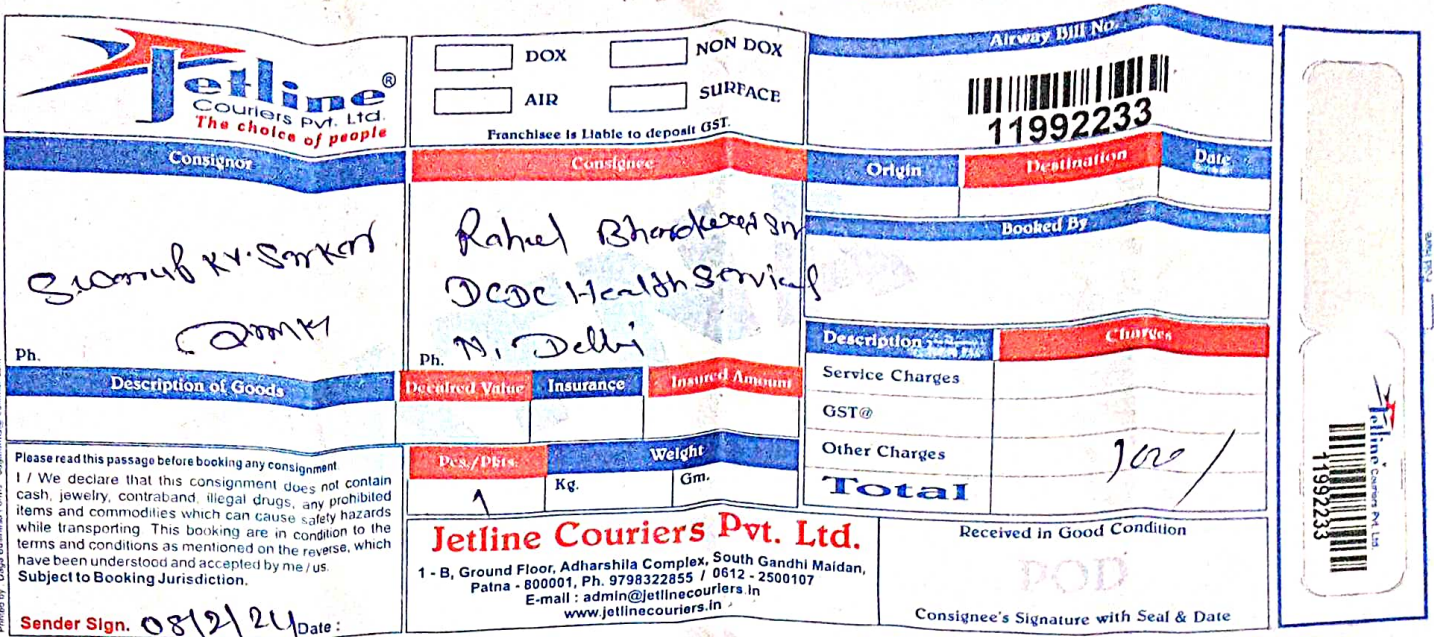 Jetline®
Couriers Pvt. Ltd.
The choice of people
DOX
NON DOX
AIR
SURFACE
Franchisee is Liable to deposit GST.
Airway Bill No.
11992233
Consignor
Consignee
Origin
Destination
Date
Rahul
DCDC Health Services
N. Delhi
Ph.
Ph.
Booked By
Description
Charges
Service Charges
GST@
Other Charges
Total
Description of Goods
Decalred Value
Insurance
Insured Amount
Pcs./Pkts.
Weight
1
Kg.
Gm.
Please read this passage before booking any consignment
I / We declare that this consignment does not contain
cash, jewelry, contraband, illegal drugs, any prohibited
items and commodities which can cause safety hazards
while transporting. This booking are in condition to the
terms and conditions as mentioned on the reverse, which
have been understood and accepted by me / us.
Subject to Booking Jurisdiction.
Sender Sign. 08/2/24 Date :
Jetline Couriers Pvt. Ltd.
1 - B, Ground Floor, Adharshila Complex, South Gandhi Maidan,
Patna - 800001, Ph. 9798322855 / 0612 - 2500107
E-mail : admin@jetlinecouriers.in
www.jetlinecouriers.in
Received in Good Condition
POD
Consignee's Signature with Seal & Date
Fold here
Jetline Couriers Pvt. Ltd.
11992233